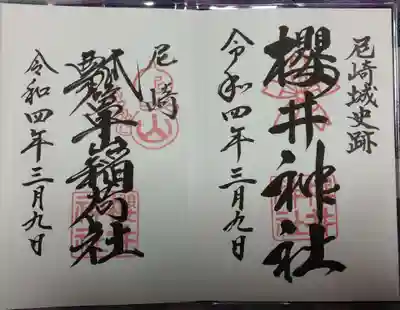 尼崎城史跡
櫻井神社
令和四年三月九日
尼崎
瓢箪山稲荷社
令和四年三月九日